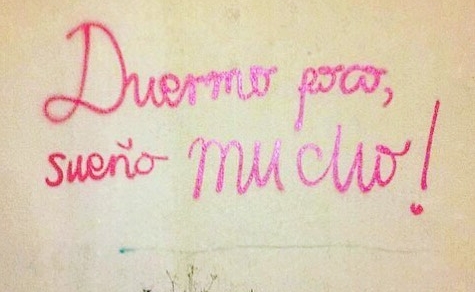 Duermo poco,
sueño mucho!